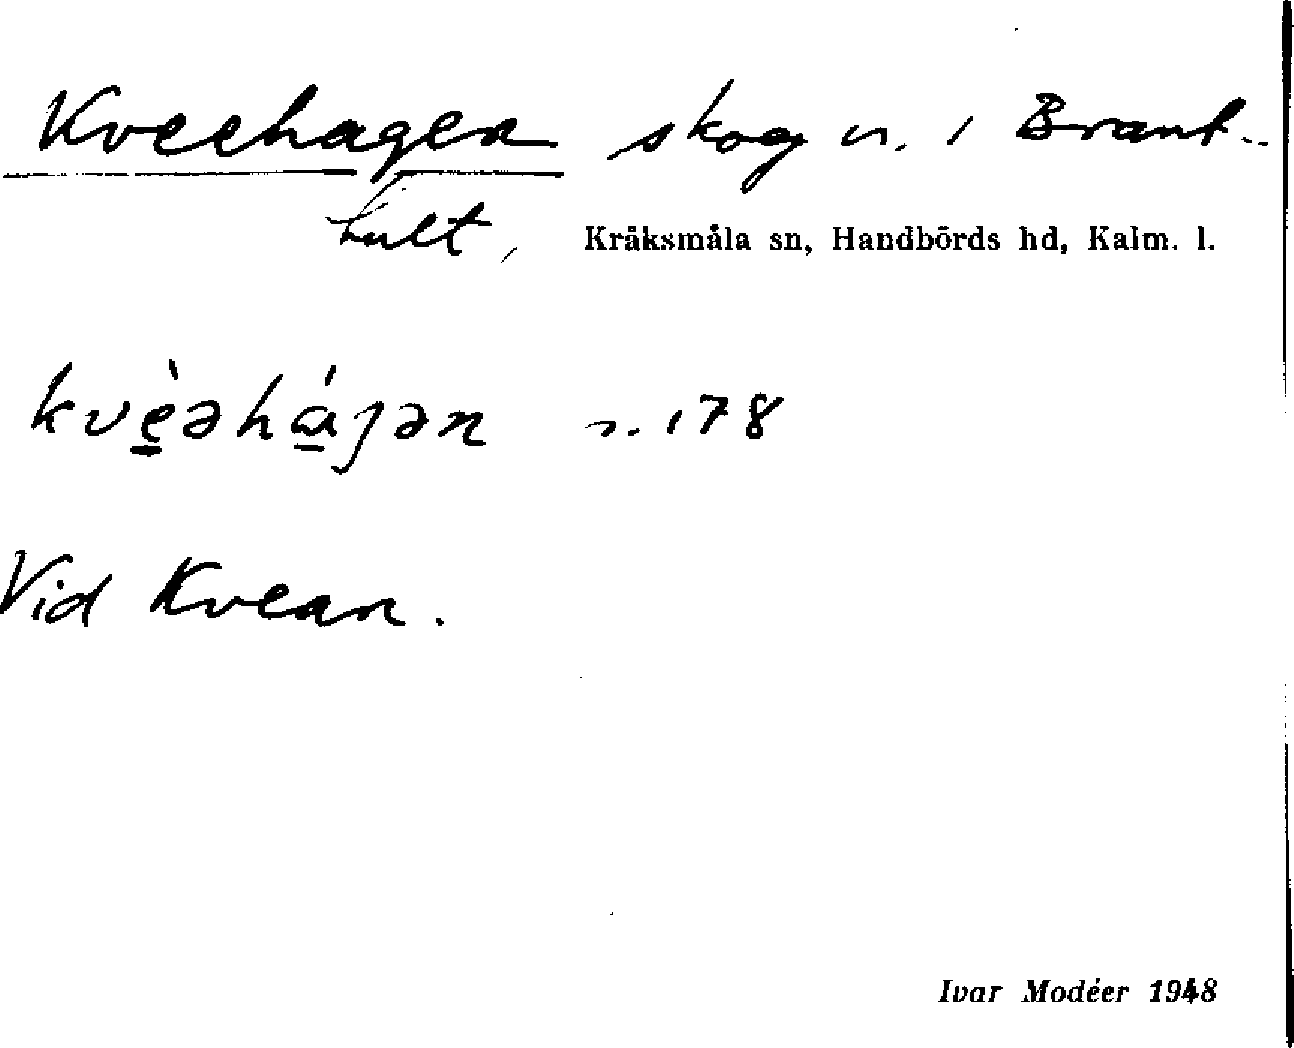 Kveehagen skog n. i Brant-
hult, Kråksmåla sn, Handbörds hd, Kalm. l.
kvè̱əhá̱jən n. 178
Vid Kvean.
Ivar Modéer 1948